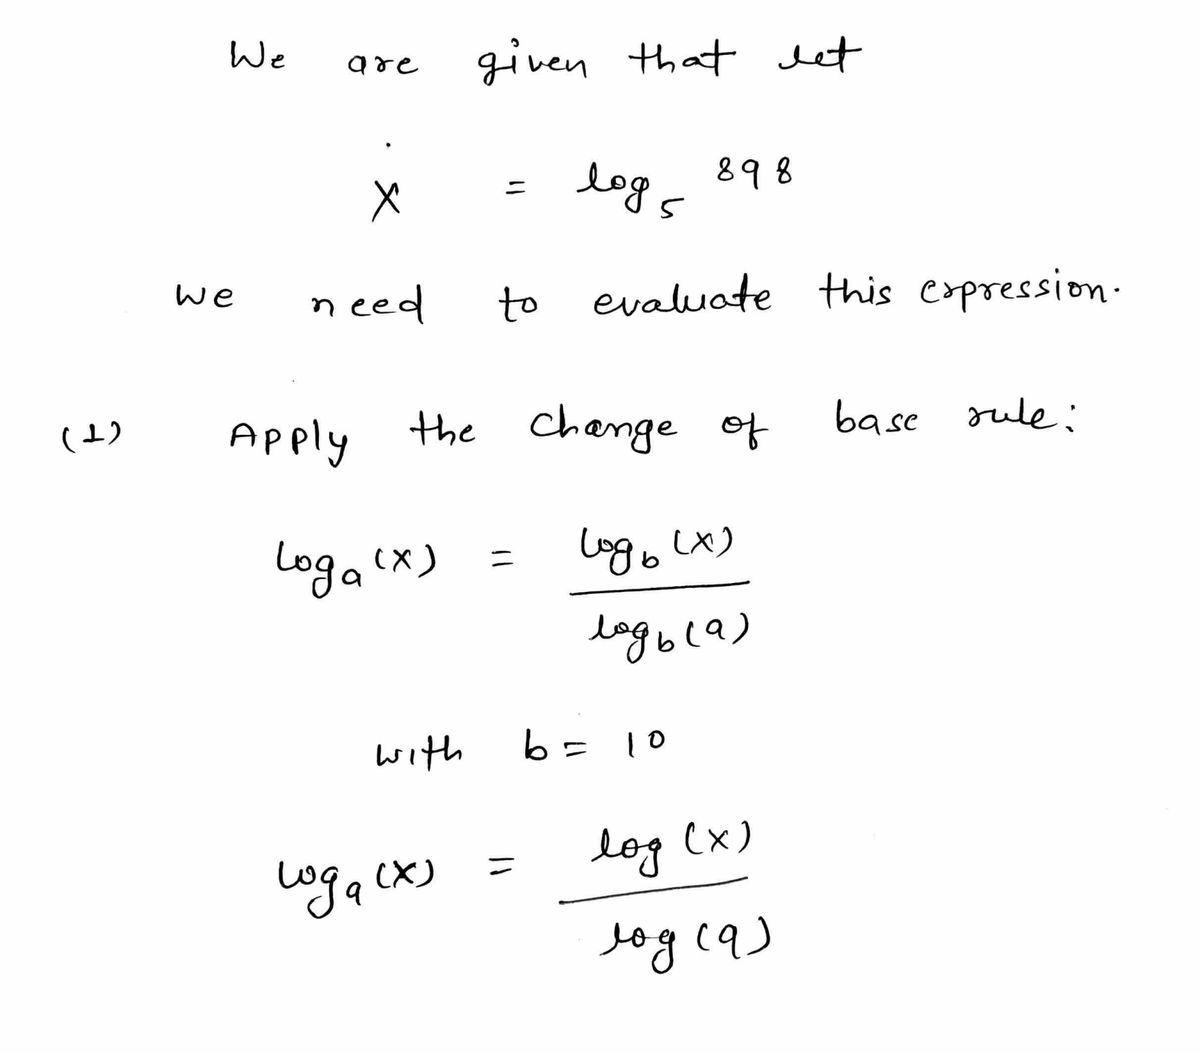 We are given that let
X = log₅ 898
we need to evaluate this expression.
(1) Apply the change of base rule:
logₐ(x) = log_b(x) / log_b(a)
with b = 10
logₐ(x) = log(x) / log(a)